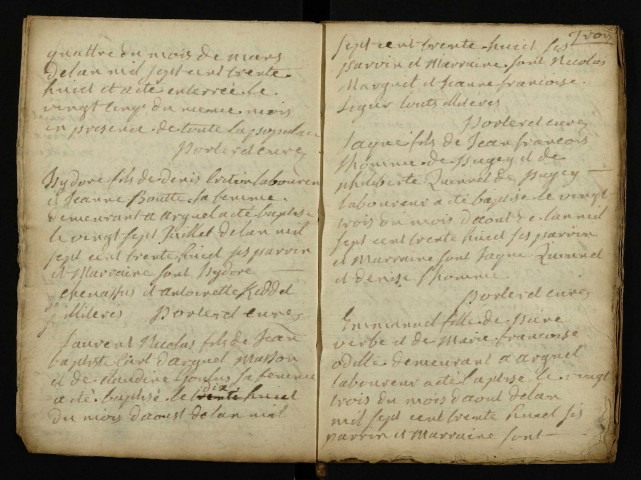 quattre du mois de mars
de lan mil sept cent trente
huict et a ete enterre le
vingt cinq du meme mois
en presence de toute la populace
Porterd curez
Isydore fils de denis laboureur
et Jeanne Boutte sa femme
demeurant a arguel a ete baptise
le vingt sept Juillet de lan mil
sept cent trente huict ses parrin
et Marraine sont Isydore
et antoinette
Porterd curez
Laurent Nicolas fils de Jean
baptiste d'arguel Masson
et de claudine sa femme
a ete baptise le dix huict
du mois d'aoust de lan mil
Trois
sept cent trente huict ses
parrin et Marraine sont Nicolas
Marguet et Jeanne francoise
touts
Porterd curez
Jaque fils de Jean francois
lhomme de Pugey et de
philiberte de Pugey
laboureur a ete baptise le vingt
trois du mois d'aout de lan mil
sept cent trente huict ses parrin
et Marraine sont Jaque
et denise lhomme
Porterd curez
Emmanuel fille de
verbe et de Marie francoise
odille demeurant a arguel
laboureur a ete baptise le vingt
trois du mois d'aout de lan
mil sept cent trente huict ses
parrin et Marraine sont